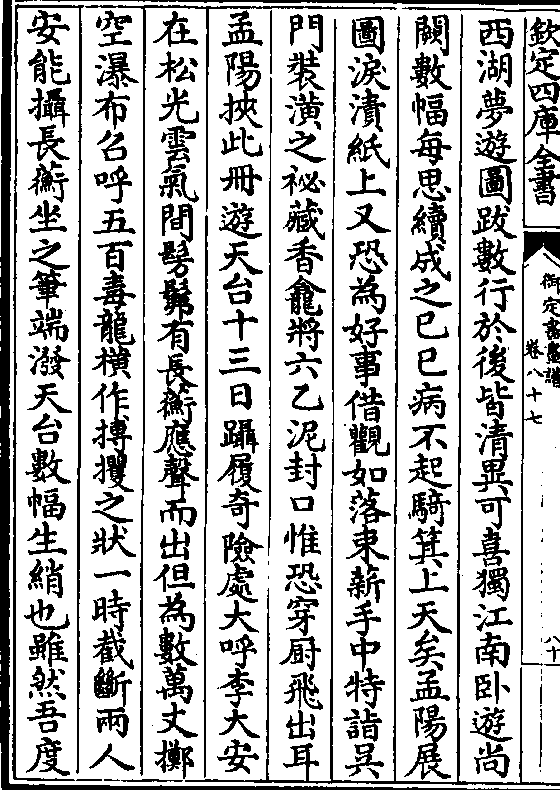 欽定四庫全書
御定書畫譜
卷八十七
八十
西湖夢遊圖跋數行於後皆清異可喜獨江南卧遊尚
闕數幅每思續成之已巳病不起騎箕上天矣孟陽展
圖淚漬紙上又恐為好事借觀如落束薪手中特詣吳
門裝潢之祕藏香龕將六乙泥封口惟恐穿厨飛出耳
孟陽挾此冊遊天台十三日躡履奇險處大呼李大安
在松光雲氣間髣髴有長蘅應聲而出但為數萬丈擲
空瀑布召呼五百毒龍横作搏攫之狀一時截斷兩人
安能攝長蘅坐之筆端潑天台數幅生綃也雖然吾度